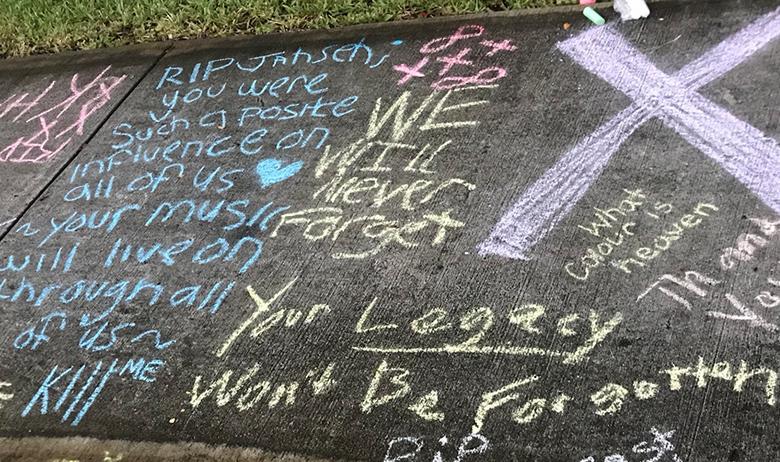 RIP Jahseh
you were
such a posite
influence on
all of us
your music
will live on
through all
of us
Kill ME
WE
WILL
Never
Forget
Your Legacy
Won't Be Forgotten
What
colour is
heaven
RIP